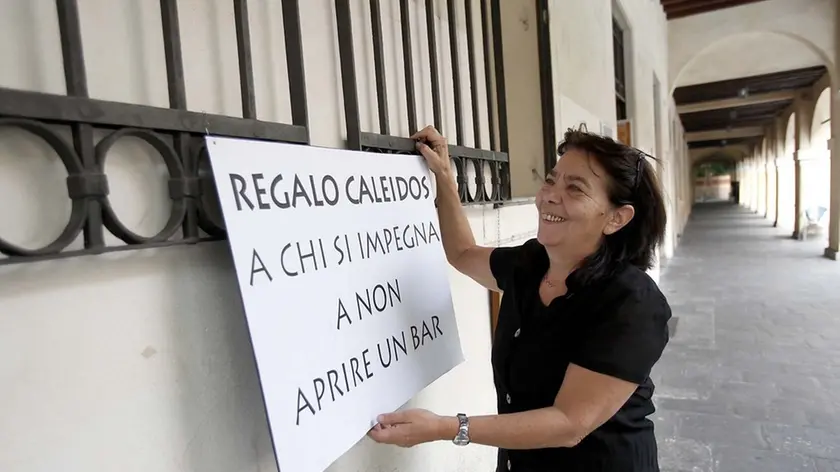 REGALO CALEIDOS
A CHI SI IMPEGNA
A NON
APRIRE UN BAR